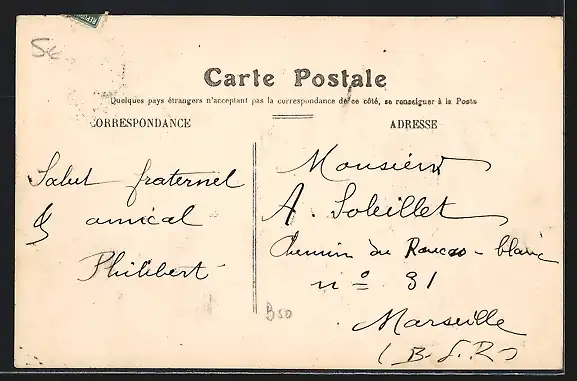 5€
Carte Postale
Quelques pays étrangers n'acceptant pas la correspondance de ce côté, se renseigner à la Poste
CORRESPONDANCE
ADRESSE
Salut fraternel
& amical
Philibert
Monsieur
A. Soleillet
Chemin du Roucas-blanc
n° 91
Marseille
(B. d. R)
B50